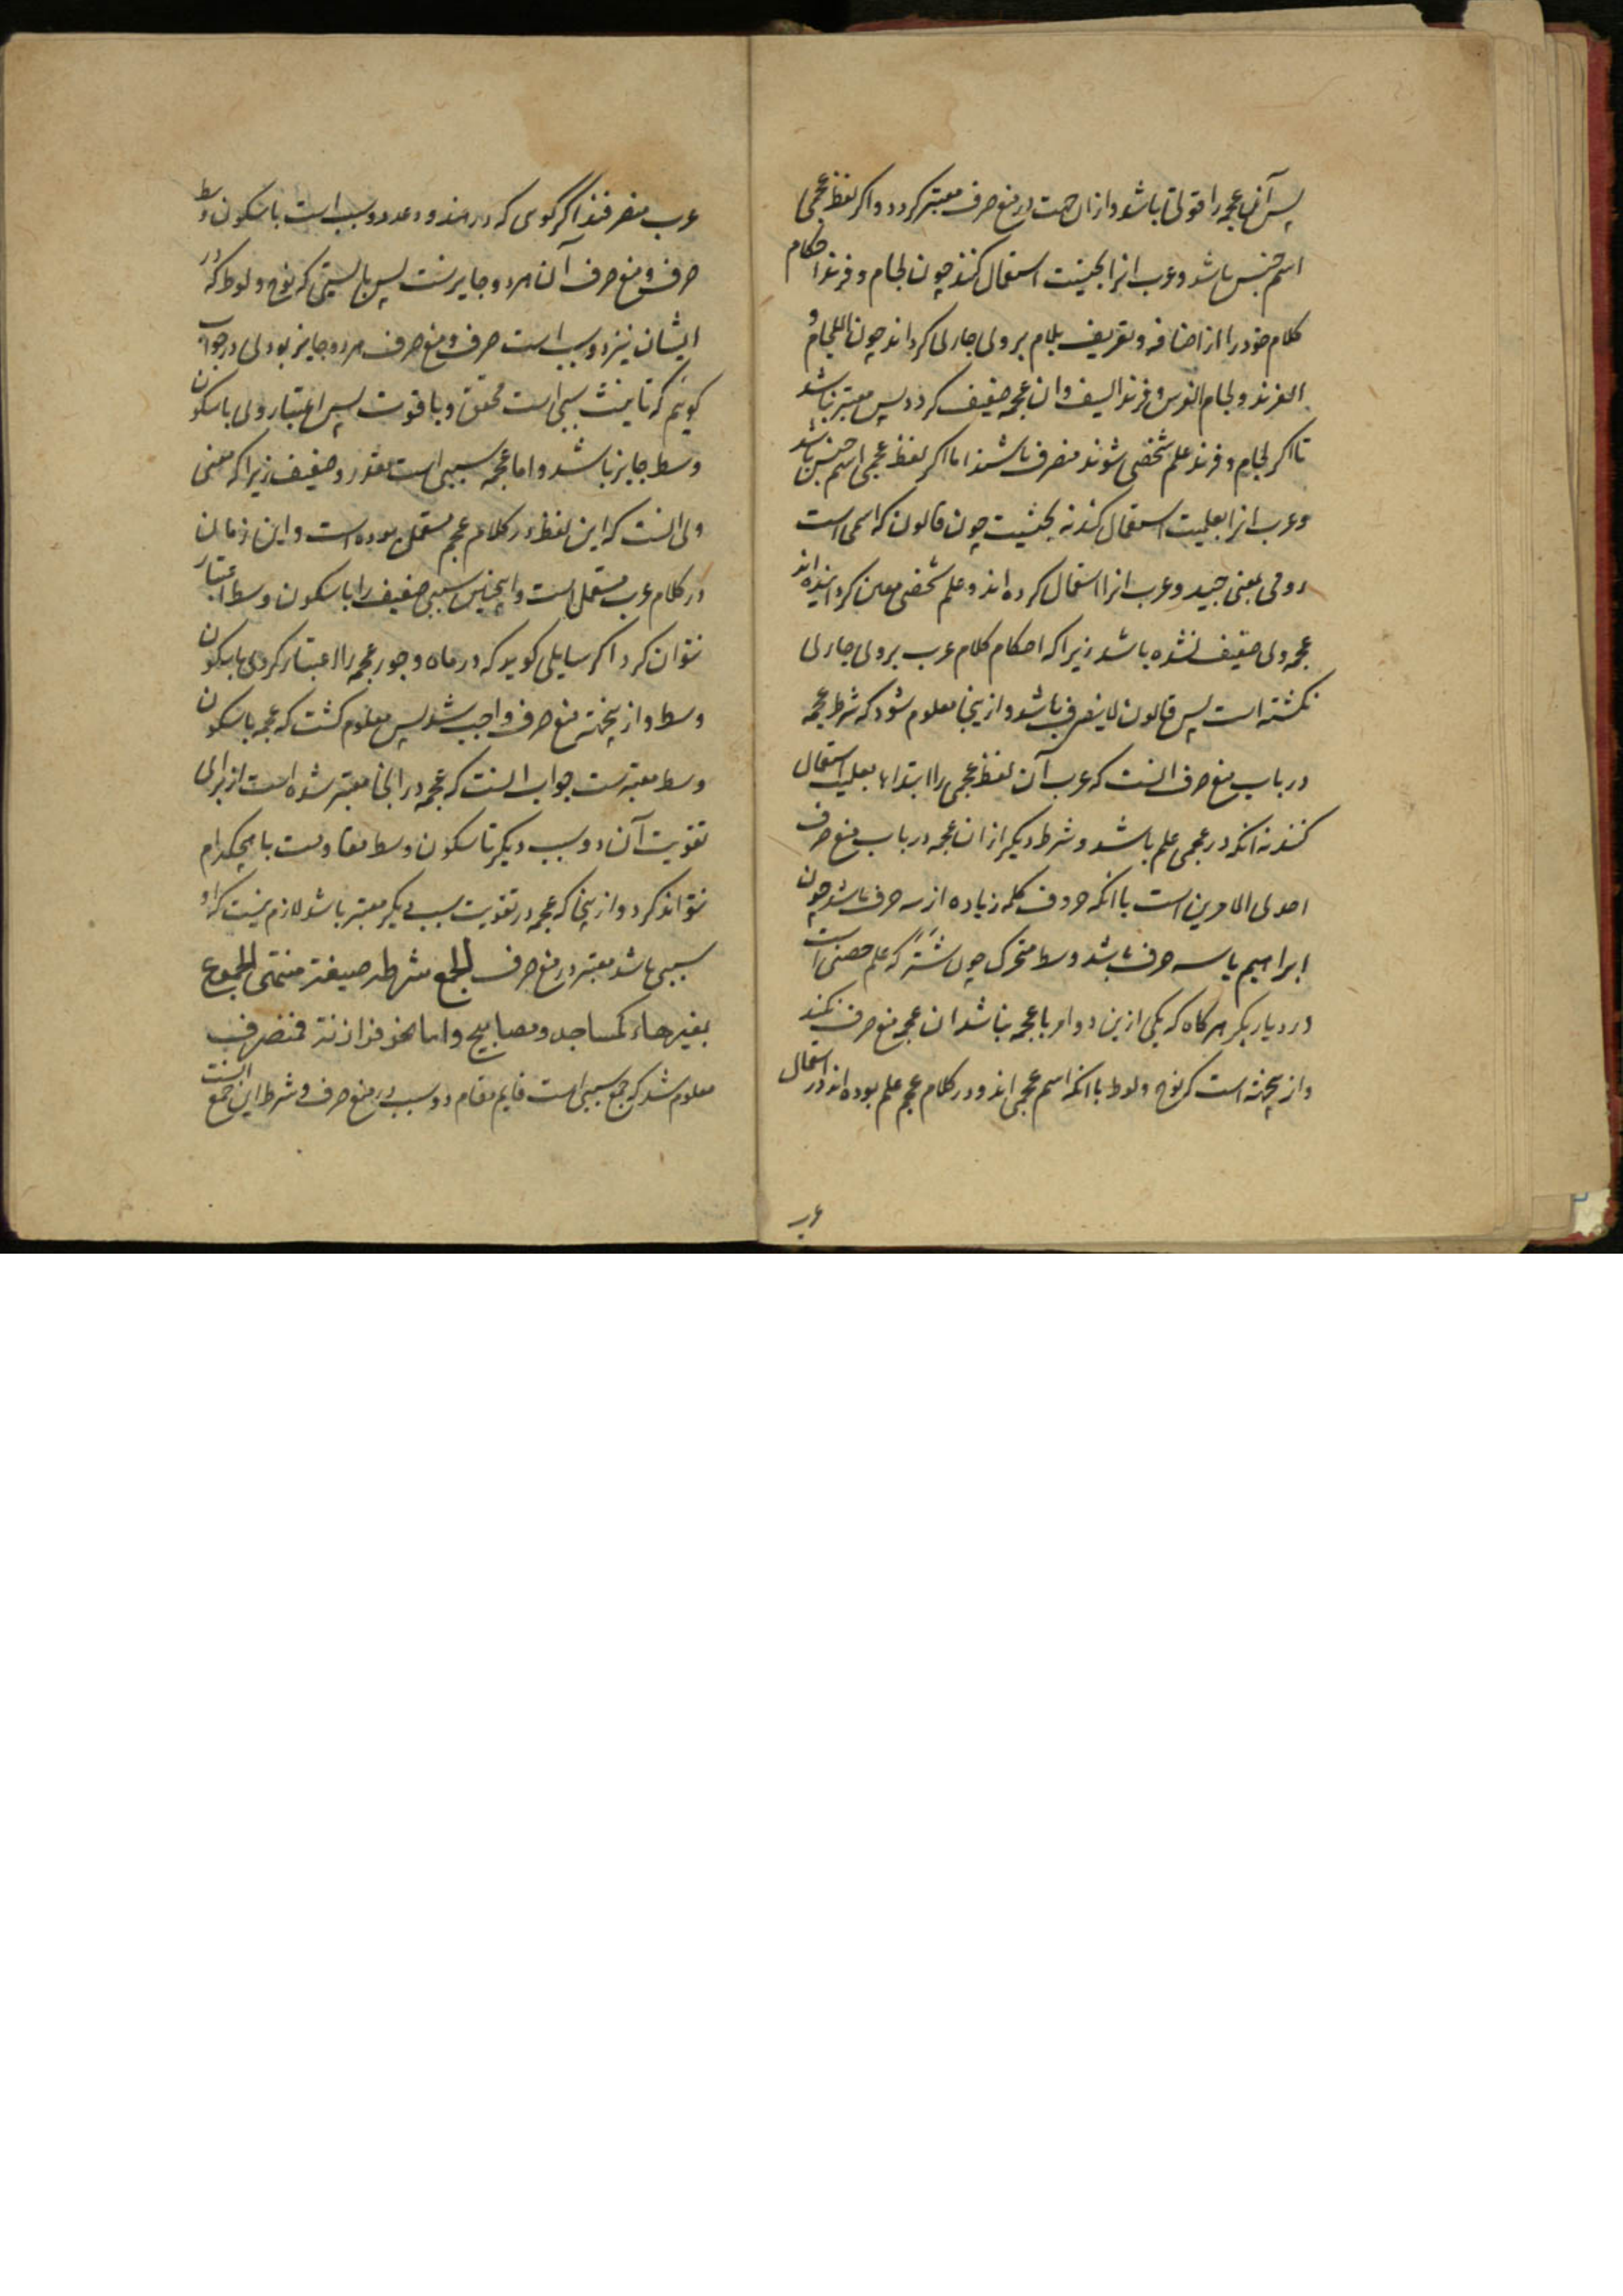 پس آن عجمه را قوتی باشد و از ان جهت در منع صرف معتبر کردد و اکر لفظ عجمی
اسم جنس باشد و عرب انرا بجنسیت استعمال کنند چون لجام و فرند احکام
کلام خود را از اضافه و تعریف بلام بر وی جاری کرداند چون اللجام و
الفرند و لجام الفرس و فرند السیف و ان عجمه ضعیف کردد پس معتبر نباشد
تا اکر لجام و فرند علم شخصی شوند منصرف باشند اما اکر لفظ عجمی اسم جنس باشد
و عرب انرا بعلمیت استعمال کند نه بجنسیت چون قالون که اسمی است
رومی بمعنی جید و عرب انرا استعمال کرده اند و علم شخصی معین کردانیده اند
عجمه وی ضعیف نشده باشد زیرا که احکام کلام عرب بر وی جاری
نکشته است پس قالون لا ینصرف باشد و ازینجا معلوم شود که شرط عجمه
در باب منع صرف انست که عرب آن لفظ عجمی را ابتداء بعلمیت استعمال
کنند نه انکه در عجمی علم باشد و شرط دیکر از ان عجمه در باب منع صرف
احدی الامرین است یا انکه حروف کلمه زیاده از سه حرف باشد چون
ابراهیم یا سه حرف باشد و سط متحرک چون شتر که علم حصنی است
در دیار بکر هر کاه که یکی ازین دو امر با عجمه نباشد ان عجمه منع صرف نکند
و ازینجهته است که نوح و لوط با انکه اسم عجمی اند و در کلام عجم علم بوده اند در استعمال
عرب
عرب منصرفند اکر کوی که در هند و دعد دو سبب است با سکون وسط
صرف و منع صرف آن هر دو جایز است پس بایستی که نوح و لوط که در
ایشان نیز دو سبب است صرف و منع صرف هر دو جایز بودی در جواب
کویم که تانیث سببی است محقق و با قوت پس اعتبار وی با سکون
وسط جایز باشد و اما عجمه سببی است مقدر و ضعیف زیرا که معنی
وی انست که این لفظ در کلام عجم مستعمل بوده است و این زمان
در کلام عرب مستعمل است و اینچنین سببی ضعیف را با سکون وسط اعتبار
نتوان کرد اکر سایلی کوید که در ماه و جور عجمه را اعتبار کردی با سکون
وسط و ازینجهته منع صرف واجب شد پس معلوم کشت که عجمه با سکون
وسط معتبرست جواب انست که عجمه در انجا معتبر شده است از برای
تقویت آن دو سبب دیکر تا سکون وسط مقاومت با هیچکدام
نتواند کرد و ازینجا که عجمه در تقویت سبب دیکر معتبر باشد لازم نیست که او
سببی باشد معتبر در منع صرف الجمع شرطه صیغة منتهی الجموع
بغیر هاء کمساجد و مصابیح و اما نحو فرازنة فمنصرف
معلوم شد که جمع سببی است قایم مقام دو سبب در منع صرف و شرط این جمع انست